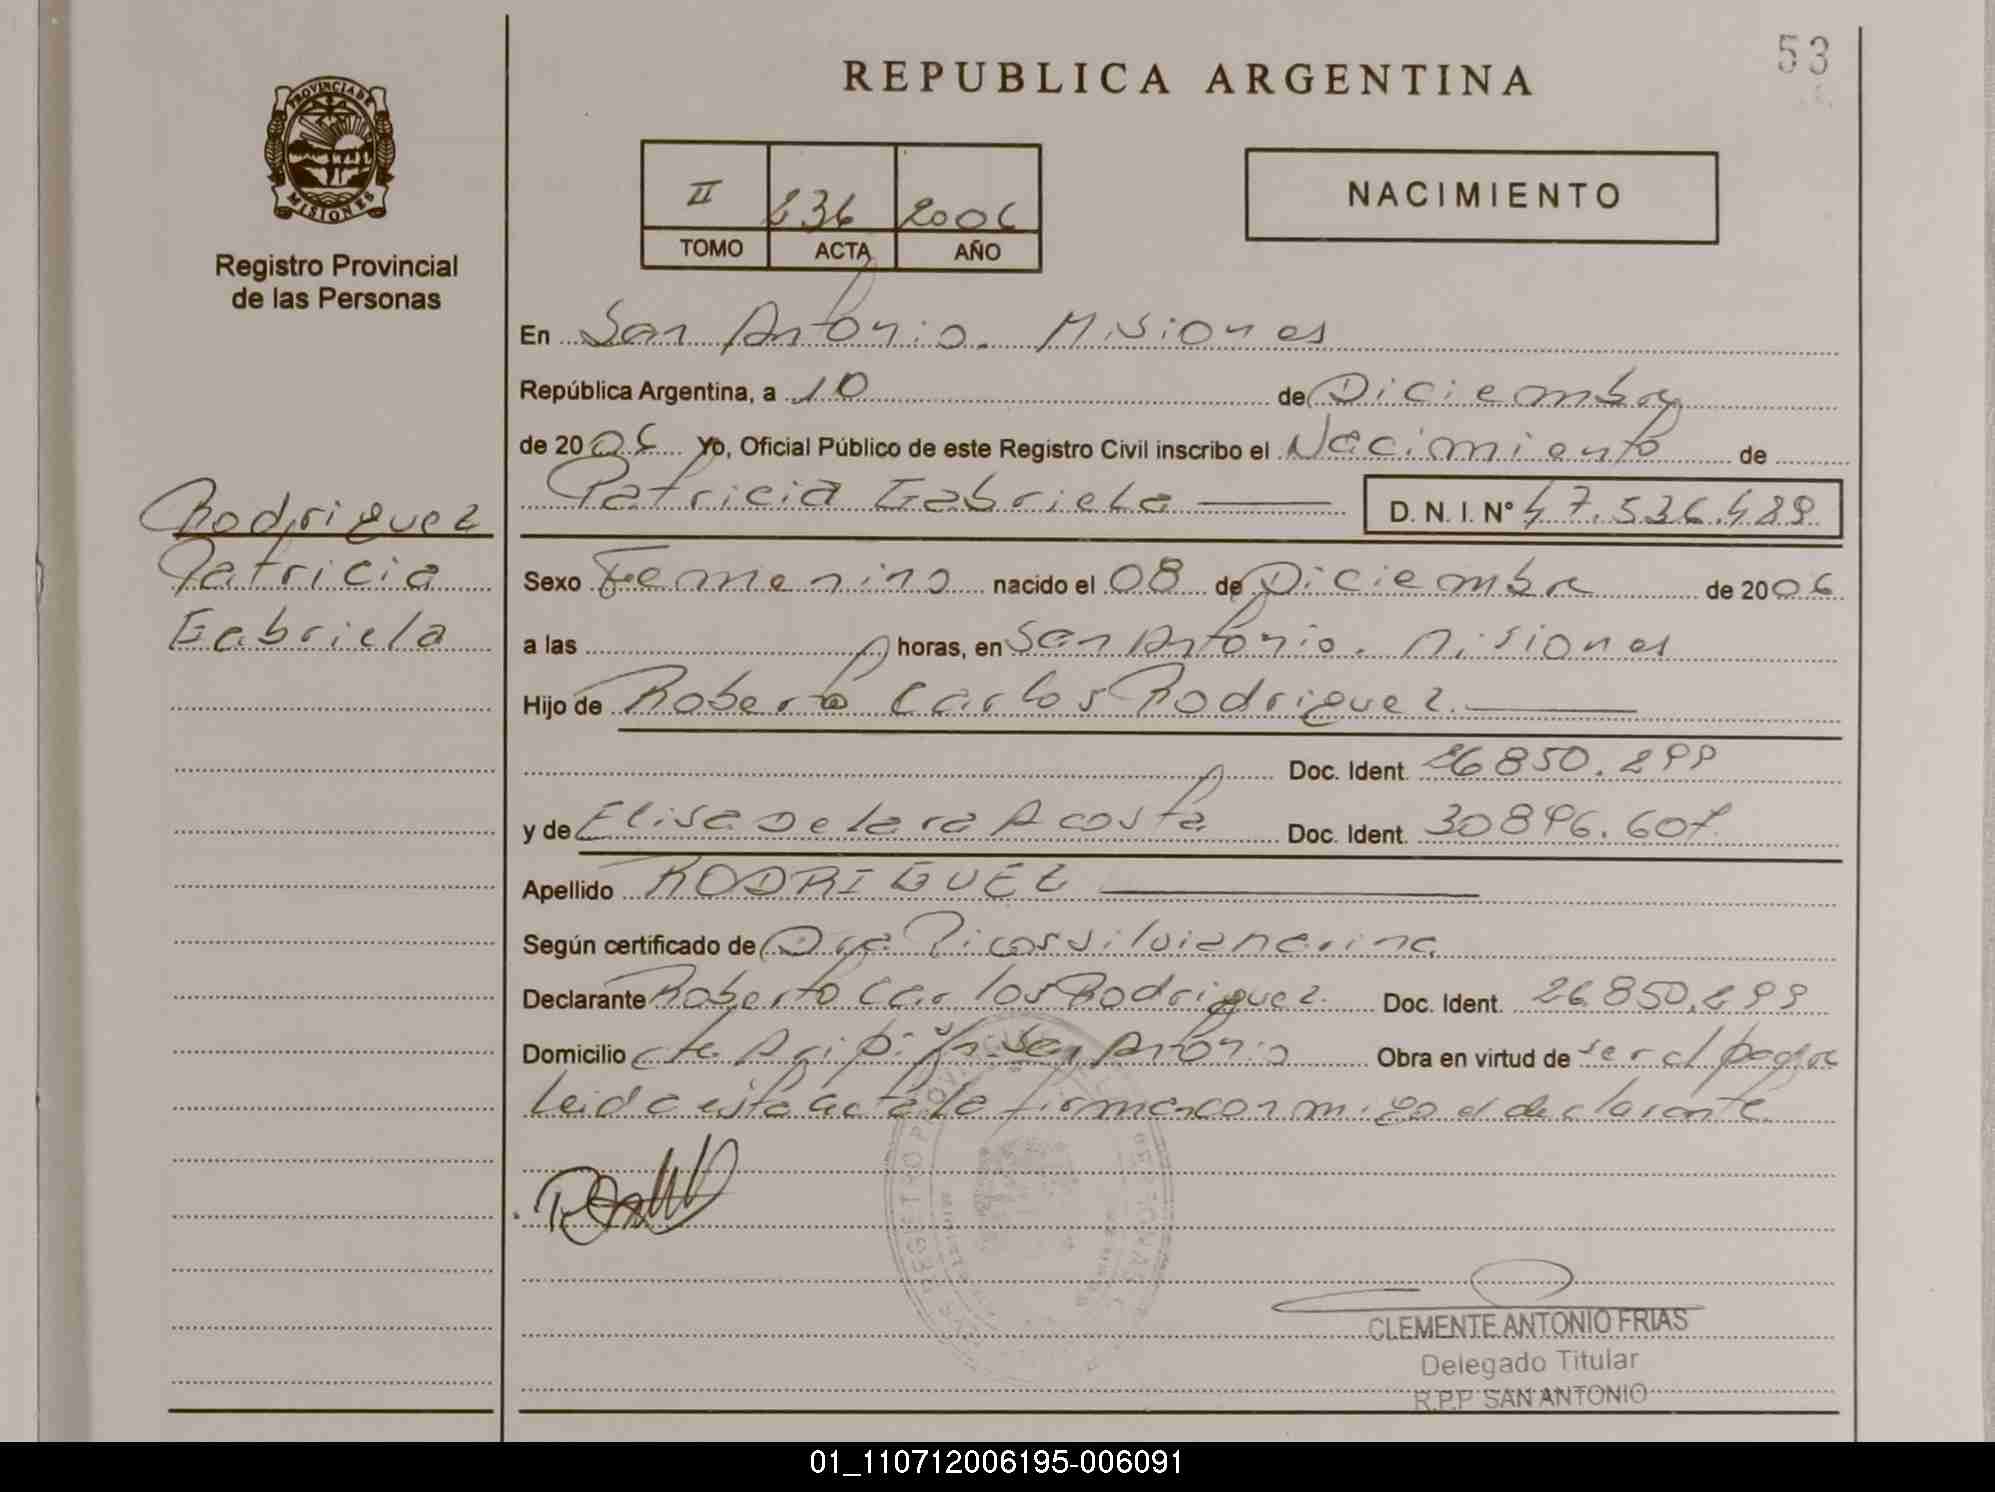 53
REPUBLICA ARGENTINA
PROVINCIA DE
MISIONES
Registro Provincial
de las Personas
II 236 2006
TOMO ACTA AÑO
NACIMIENTO
En San Antonio. Misiones
República Argentina, a 10 de Diciembre
de 2006 Yo, Oficial Público de este Registro Civil inscribo el Nacimiento de
Patricia Gabriela D. N. I. N° 47.536.489
Rodriguez
Patricia
Gabriela
Sexo Femenino nacido el 08 de Diciembre de 2006
a las horas, en San Antonio. Misiones
Hijo de Roberto Carlos Rodriguez.
Doc. Ident. 26850.299
y de Elisa De lara Acosta Doc. Ident. 30896.607
Apellido RODRIGUEZ
Según certificado de Dra Picos Silvia
Declarante Roberto Carlos Rodriguez. Doc. Ident. 26.850.299
Domicilio San Antonio Obra en virtud de ser el padre
leida esta acta la firma con migo el declarante
CLEMENTE ANTONIO FRIAS
Delegado Titular
R.P.P SAN ANTONIO
01_110712006195-006091